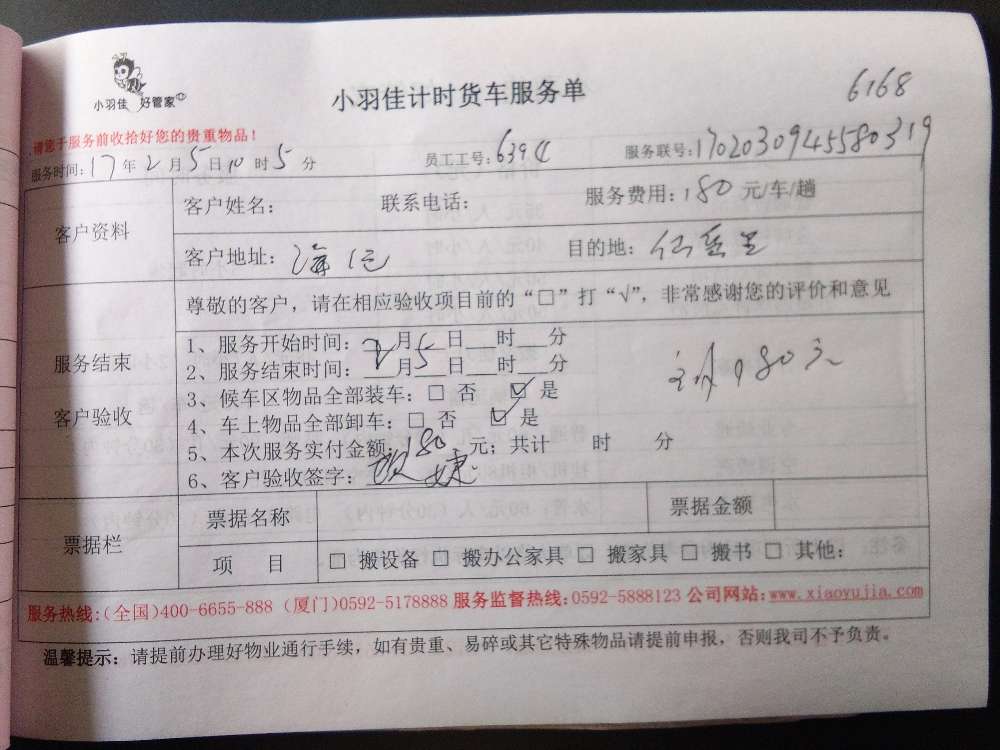 小羽佳 好管家
小羽佳计时货车服务单
6168
请您于服务前收拾好您的贵重物品！
服务时间：17年2月5日10时5分 员工工号：6394 服务联号：1702030945580319
客户资料
客户姓名： 联系电话： 服务费用：180元/车/趟
客户地址： 目的地：仙岳里
尊敬的客户，请在相应验收项目前的“□”打“√”，非常感谢您的评价和意见
服务结束
客户验收
1、服务开始时间：2月5日 时 分
2、服务结束时间：2月5日 时 分
3、候车区物品全部装车：□ 否 ☑ 是
4、车上物品全部卸车：□ 否 ☑ 是
5、本次服务实付金额：180元；共计 时 分
6、客户验收签字：
180元
票据栏
票据名称 票据金额
项 目 □ 搬设备 □ 搬办公家具 □ 搬家具 □ 搬书 □ 其他：
服务热线:(全国)400-6655-888 (厦门)0592-5178888 服务监督热线:0592-5888123 公司网站:www.xiaoyujia.com
温馨提示：请提前办理好物业通行手续，如有贵重、易碎或其它特殊物品请提前申报，否则我司不予负责。